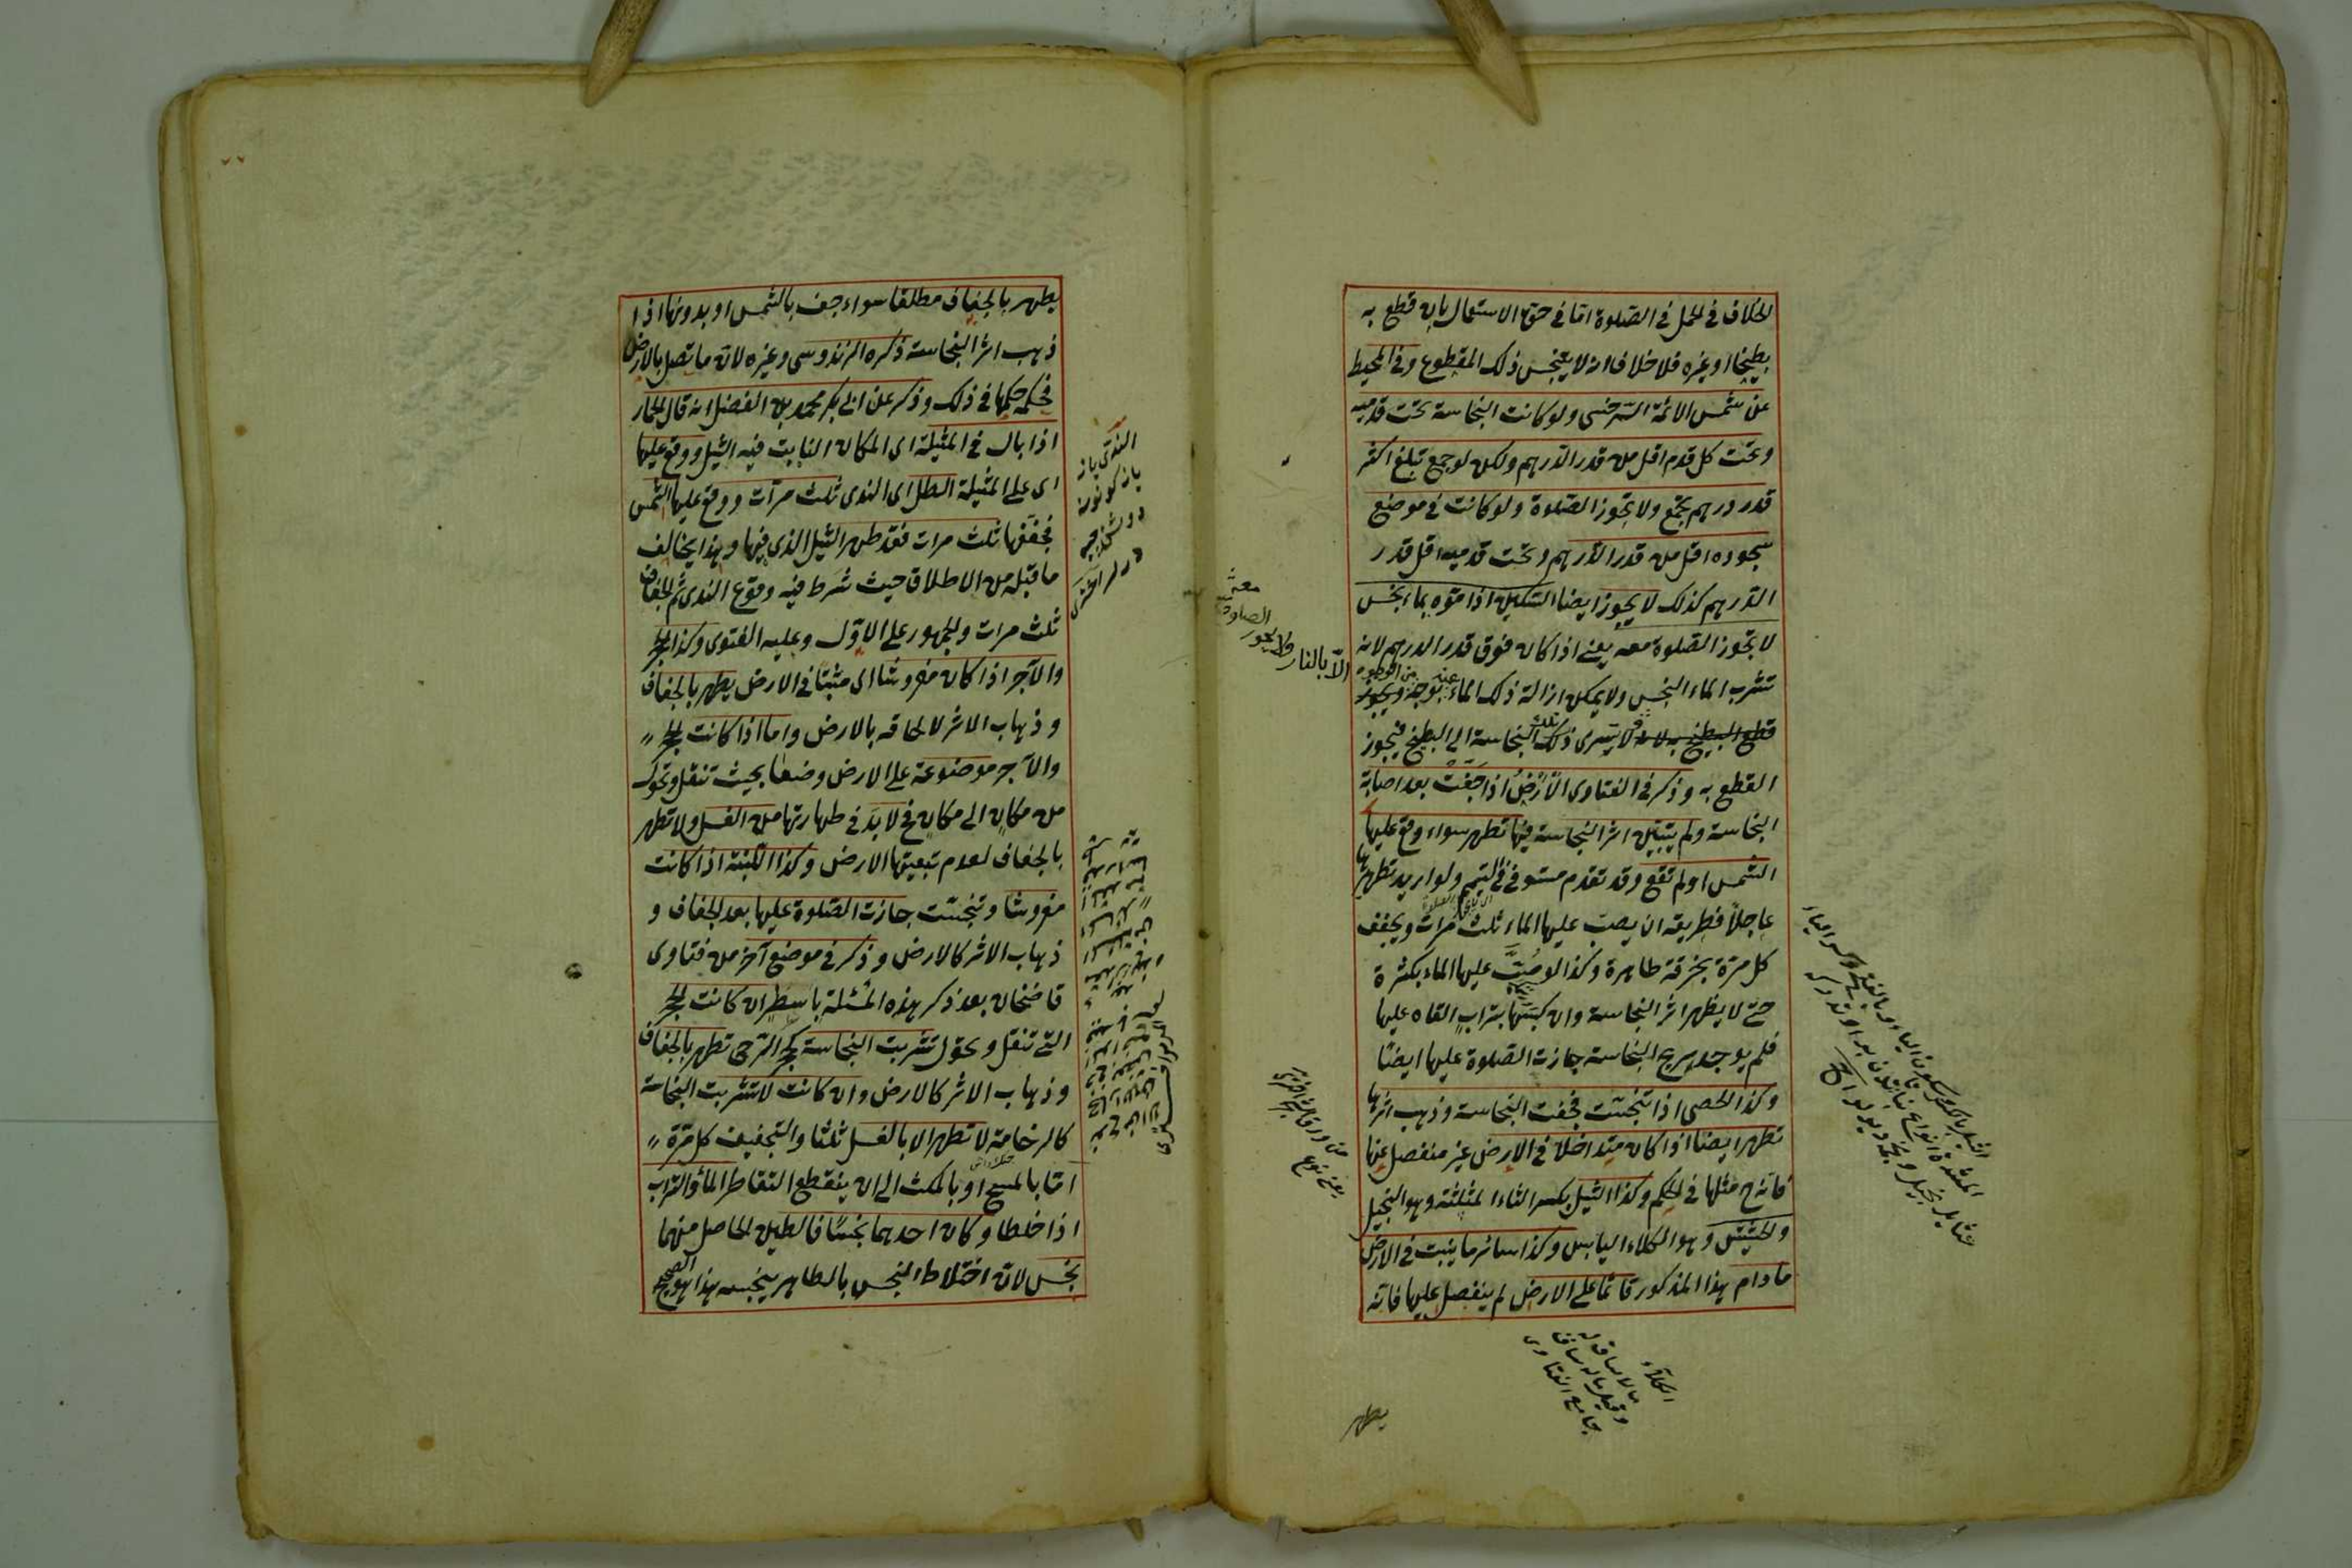 الخلاف في الحمل في الصلوة اما في حق الاستعمال بان قطع به
بطيخا او غيره فلا خلاف انه لا يتنجس ذلك المقطوع وفي المحيط
عن شمس الائمة السرخسى ولو كانت النجاسة تحت قدميه
وتحت كل قدم اقل من قدر الدرهم ولكن لو جمع تبلغ اكثر
قدر درهم تجمع ولا تجوز الصلوة ولو كانت في موضع
سجوده اقل من قدر الدرهم وتحت قدميه اقل قدر
الدرهم كذلك لا يجوز ايضا السكين اذا موّه بماء نجس
لا تجوز الصلوة معه يعنى اذا كان فوق قدر الدرهم لانه
تشرب الماء النجس ولا يمكن ازالة ذلك الماء عنه بوجه ويجوز
قطع البطيخ به لانه لا يسرى ذلك النجاسة الى البطيخ فيجوز
القطع به وذكر في الفتاوى الارض اذا جفت بعد اصابة
النجاسة ولم يتبين اثر النجاسة فيها تطهر سواء وقع عليها
الشمس اولم تقع وقد تقدم مستوفى في التيمم ولو اريد تطهيرها
عاجلا فطريقه ان يصب عليها الماء ثلث مرات ويجفف
كل مرة بخرقة طاهرة وكذا لو صُبّ عليها الماء بكثرة
حتى لا يظهر اثر النجاسة وان كبسها بتراب القاه عليها
فلم يوجد ريح النجاسة جازت الصلوة عليها ايضا
وكذا الحصى اذا تنجست فجفت النجاسة وذهب اثرها
تطهر ايضا اذا كان متداخلا في الارض غير منفصل عنها
فانه ح مثلها في الحكم وكذا الثيل بكسر الثاء المثلثة وهو النجيل
والحشيش وهو الكلاء اليابس وكذا سائر ما ينبت في الارض
ما دام هذا المذكور قائما على الارض لم ينفصل عليها فانه
الا بالنار ولا يجوز
الصلوة
معه
الكلاء
مالا ساق له
وقيل ماله ساق
جامع الفتاوى
يطهر
يطهر بالجفاف مطلقا سواء جف بالشمس او بدونها اذا
ذهب اثر النجاسة ذكره الزندوسى وغيره لان ما تصل بالارض
فحكمه حكمها في ذلك وذكر عن ابى بكر محمد بن الفضل انه قال الحمار
اذا بال في المثيلة اى المكان النابت فيه الثيل ووقع عليها
اى على المثيلة الطل اى الندى ثلث مرات ووقع عليها الشمس
فجففها ثلث مرات فقد طهر الثيل الذى فيها وهذا يخالف
ما قبله من الاطلاق حيث شرط فيه وقوع الندى ثم الجفاف
ثلث مرات والجمهور على الاول وعليه الفتوى وكذا الحجر
والآجر اذا كان مفروشا اى مثبتا في الارض يطهر بالجفاف
وذهاب الاثر لالحاقه بالارض واما اذا كانت الحجر
والآجر موضوعة على الارض وضعا بحيث تنقل وتحول
من مكان الى مكان فح لا بد في طهارتها من الغسل ولا تطهر
بالجفاف لعدم تبعيتها الارض وكذا اللبنة اذا كانت
مفروشا وتنجست جازت الصلوة عليها بعد الجفاف و
ذهاب الاثر كالارض وذكر في موضع آخر من فتاوى
قاضخان بعد ذكر هذه المسئلة باسطر ان كانت الحجر
التى تنقل وتحول تشربت النجاسة كحجر الرحى تطهر بالجفاف
وذهاب الاثر كالارض وان كانت لا تشربت النجاسة
كالرخامة لا تطهر الا بالغسل ثلثا والتجفيف كل مرة
اما بالمسح او بالمكث الى ان ينقطع التقاطر الماء والتراب
اذا خلطا وكان احدهما نجسا فالطين الحاصل منهما
نجس لان اختلاط النجس بالطاهر ينجسه هذا هو الصحيح